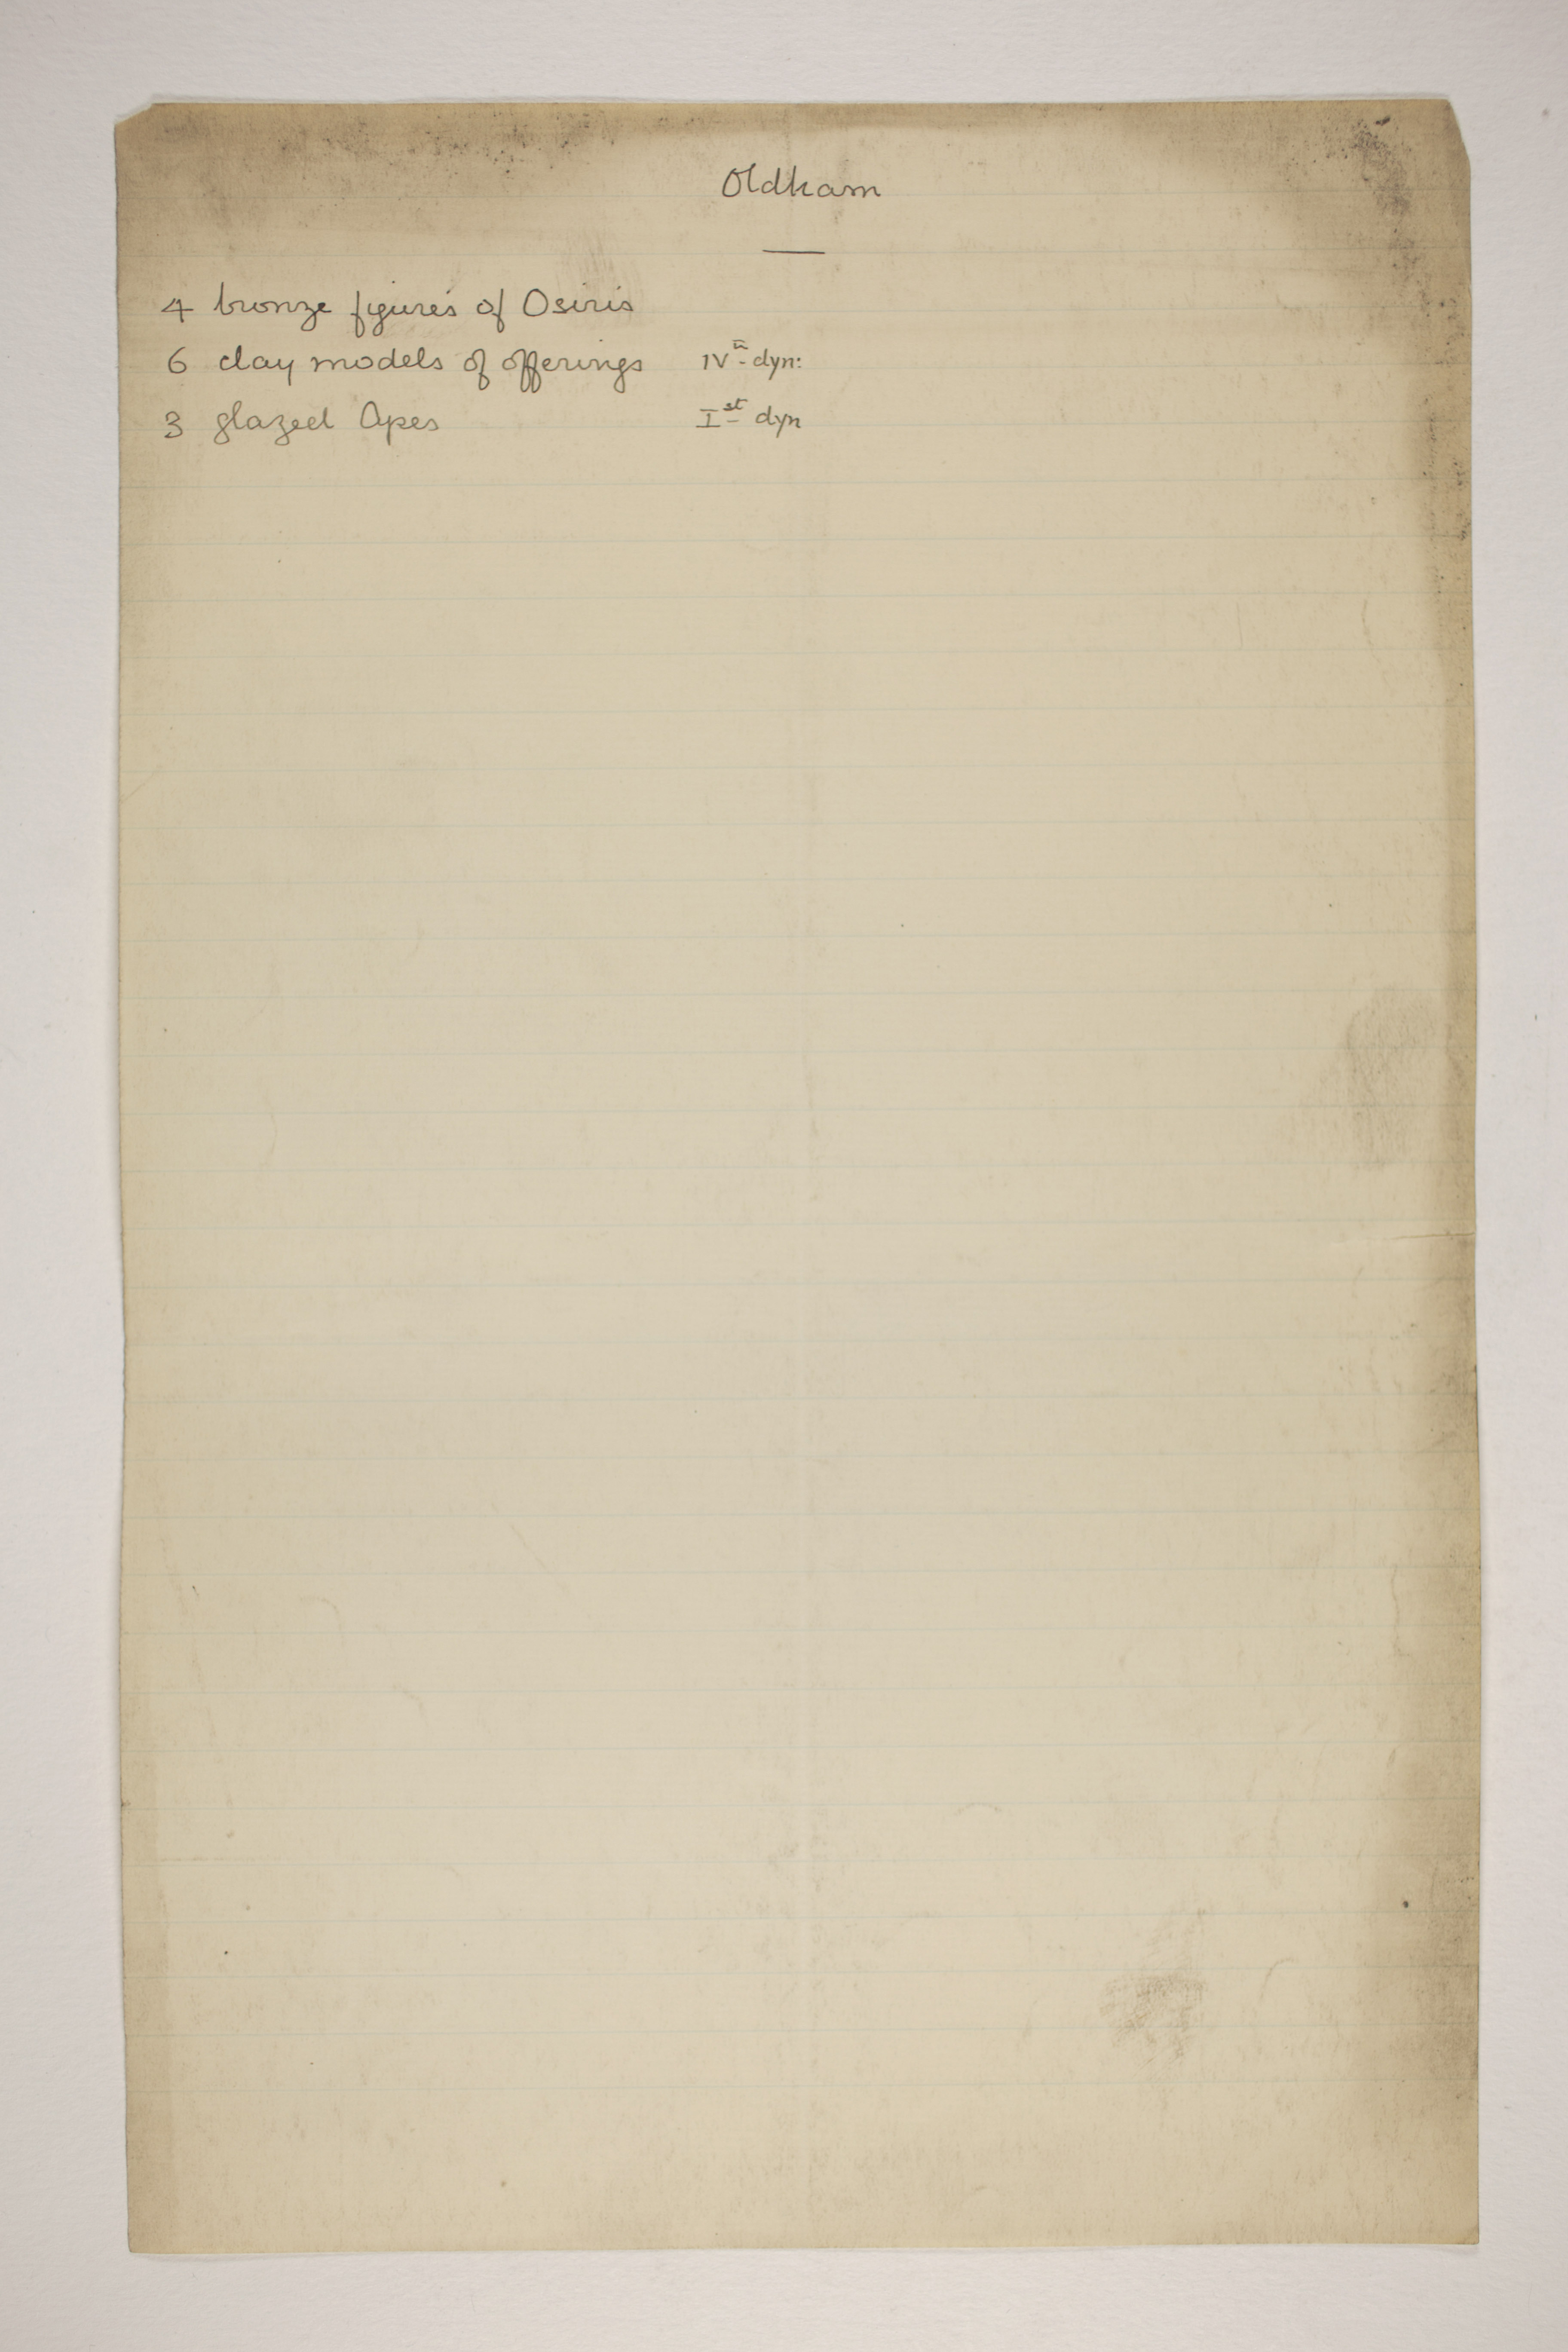 Oldham
4 bronze figures of Osiris
6 clay models of offerings IVth dyn:
3 glazed Apes Ist dyn